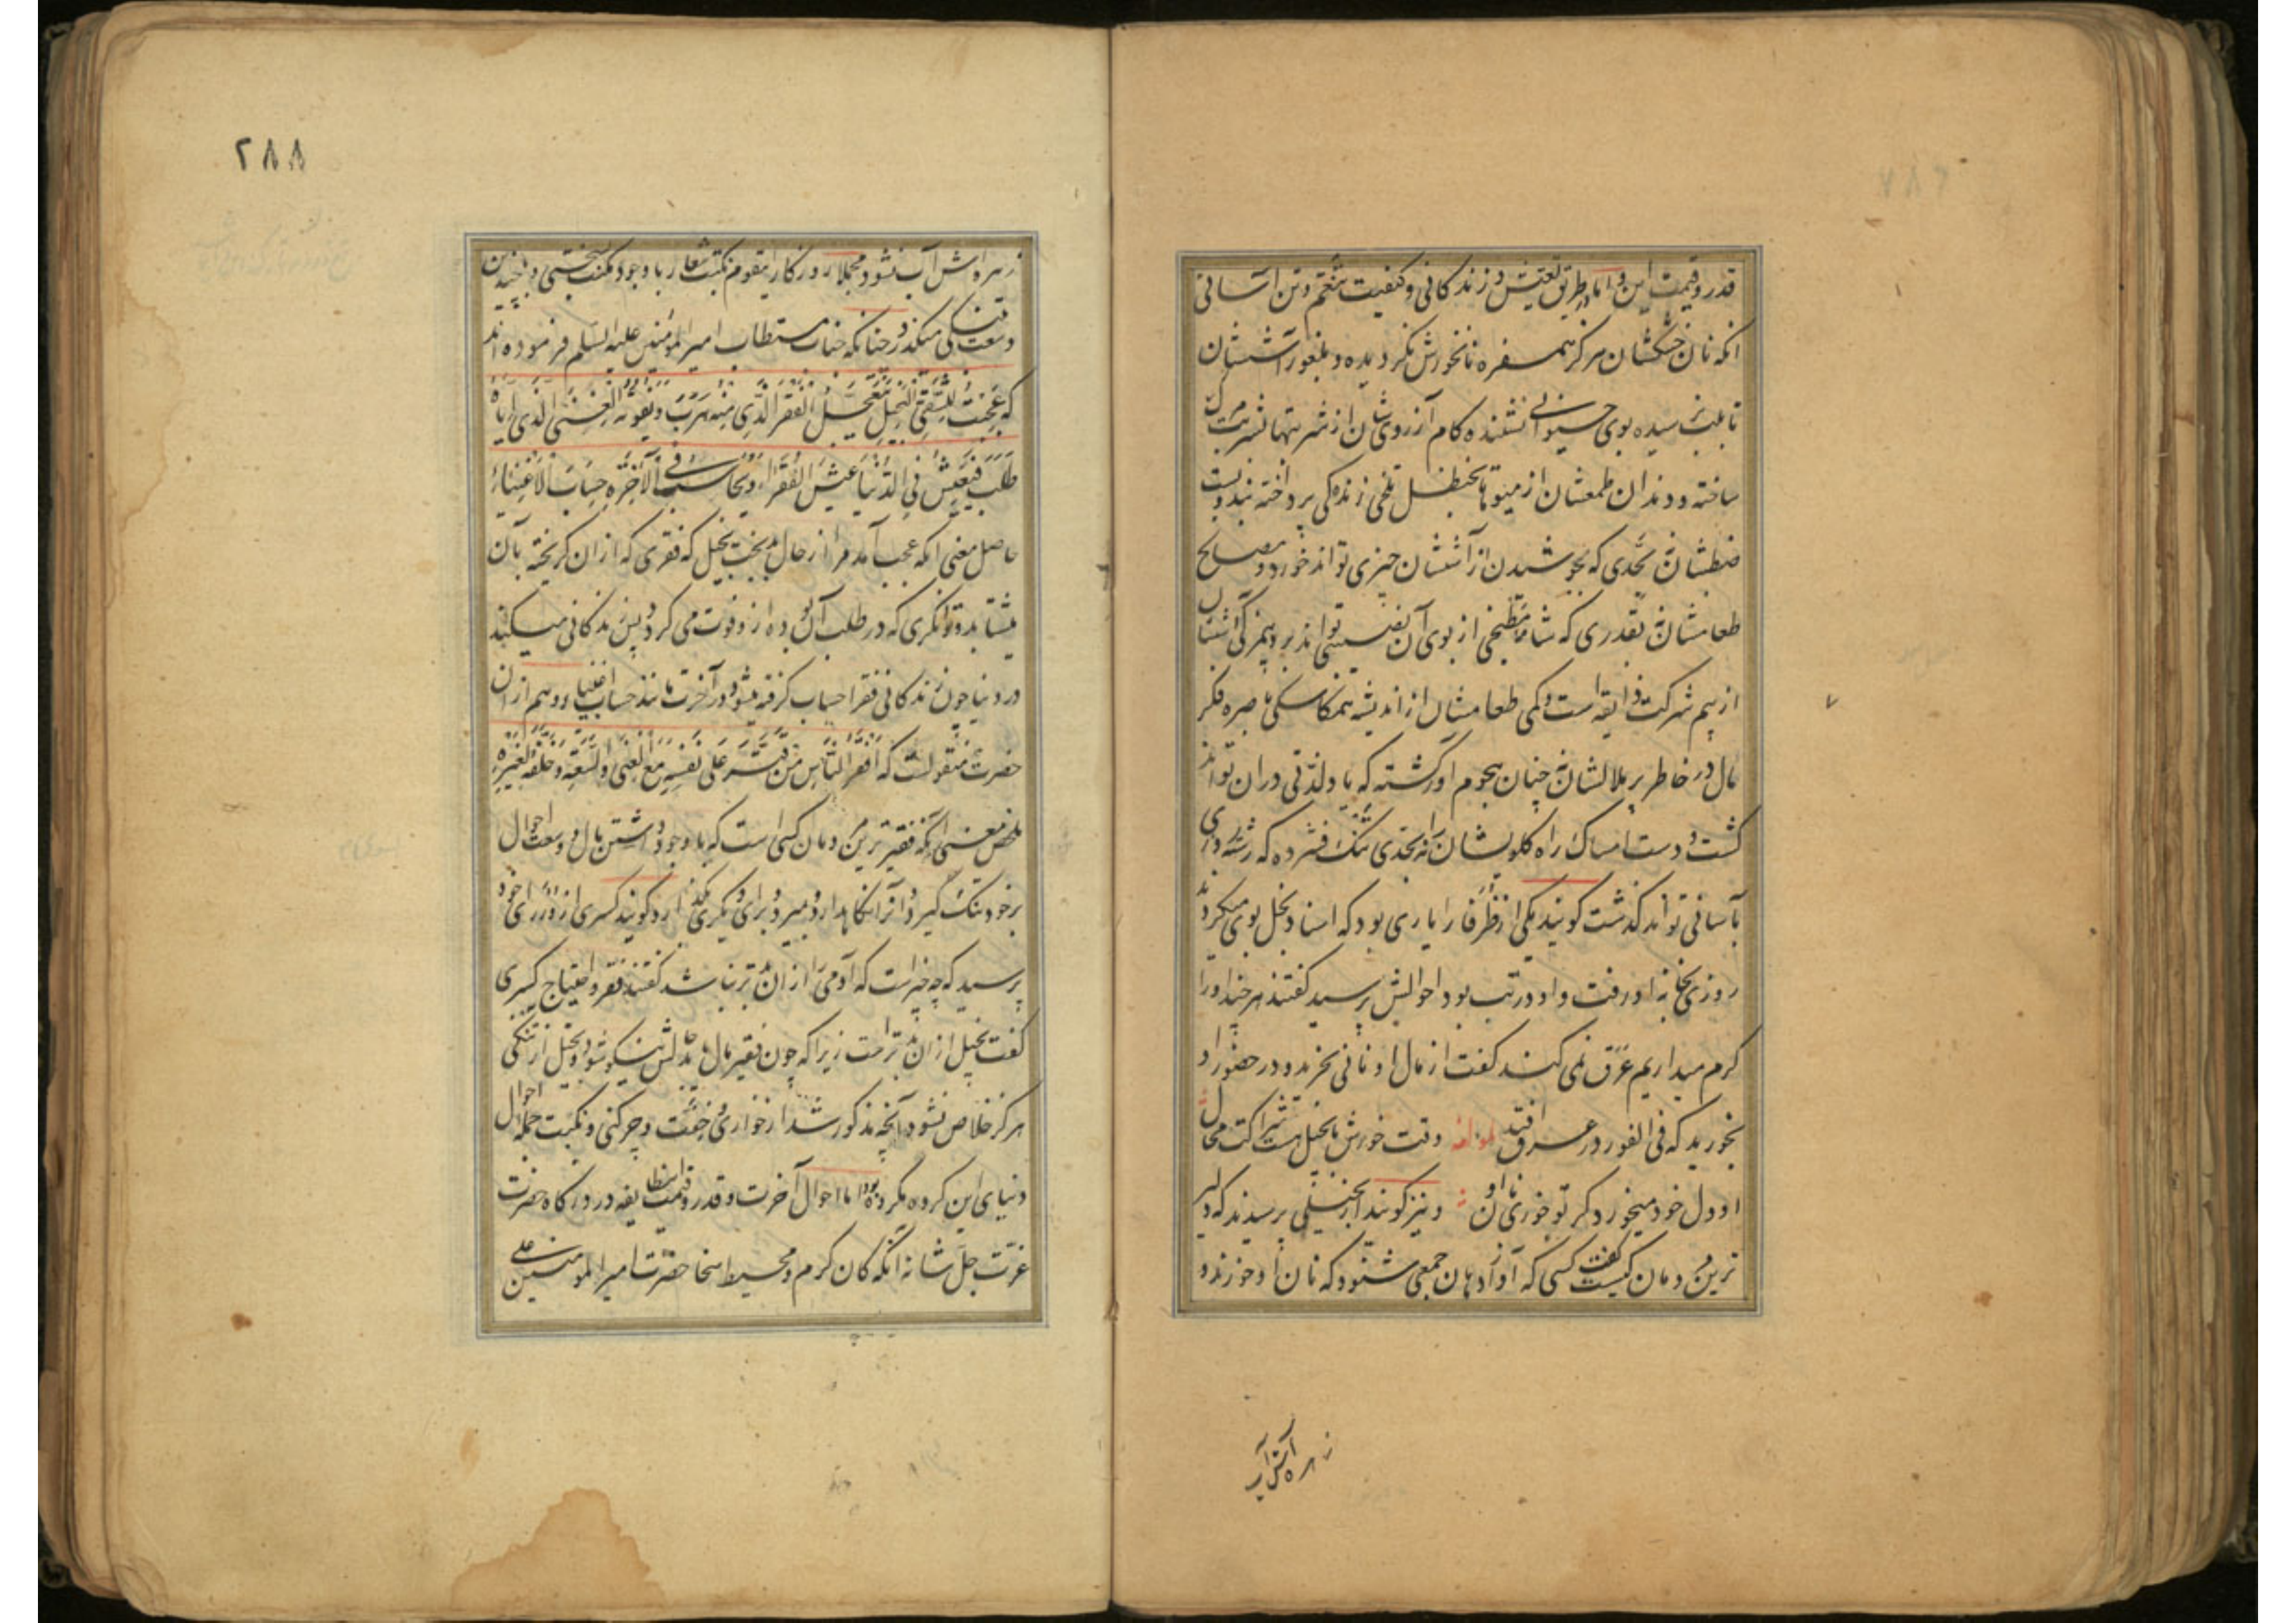 قدر و قیمت این و اما طریق تعیش و زندگانی و کیفیت تنعم و تن آسانی
انکه نان خشکشان هرگز همسفره نانخورش نگردیده و بلغور آششان
ساخته و دندان طمعشان از میوها بحنظل تلخی زندگی پرداخته بندوبست
ضبطشان بحدی که بجوشیدن از آششان چیزی تواند خورد و مصالح
طعامشان بقدری که شامه مطبخی از بوی آن نفسی تواند برد
از بیم شرکت ذایقه است و کمی طعامشان از اندیشه همکاسکی باصره فکر
مال در خاطر پر ملالشان چنان هجوم اور گشته که یاد لذتی دران تواند
گشت و دست امساک راه گلویشان را نه بحدی تنگ فشرده که رشته
بآسانی تواند گذشت گویند یکی از ظرفا را یاری بود که اسناد بخل بوی میکردند
روزی بخانه او رفت و او در تب بود احوالش پرسید گفتند هر چند او را
گرم میداریم عرق نمی کند گفت از مال او نانی بخرید و در حضور او
بخورید که فی الفور در عرق افتد لمولفه وقت خورش با بخیل هست شراکت محال
او دل خود میخورد گر تو خوری نان او و نیز گویند از بخیلی پرسیدند که دلیر
ترین مردمان کیست گفت کسی که آواز دهان جمعی شنود که نان او خورند و
زهره اش آب
۲۸۸
زهره اش آب نشود مجملا روزگار اینقوم نکبت شعار با وجود مکنت بسختی و چندین
وسعت بتنگی میگذرد چنانکه جناب مستطاب امیر المؤمنین علیه السلم فرموده اند
که عَجِبْتُ لِلشَّقِیِّ الْبَخیلِ یَتَعَجَّلُ الْفَقْرَ الَّذی مِنْهُ هَرَبَ وَ یَفُوتُهُ الْغِنَی الَّذی اِیّاهُ
طَلَبَ فَیَعیشُ فِی الدُّنْیا عَیْشَ الْفُقَراءِ وَ یُحاسَبُ فِی الْآخِرَةِ حِسابَ الْاَغْنِیاءِ
حاصل معنی انکه عجب آمد مرا از حال بدبخت بخیل که فقری که از ان گریخته بآن
میشتابد و توانگری که در طلب آن بوده از و فوت می گردد پس زندگانی میکند
در دنیا چون زندگانی فقرا و حساب گرفته میشود در آخرت مانند حساب اغنیا و هم از ان
حضرت منقولست که اَفْقَرُ النّاسِ مَنْ قَتَّرَ عَلی نَفْسِهِ مَعَ الْغِنی وَ السَّعَةِ وَ خَلَّفَهُ لِغَیْرِهِ
ملخص معنی انکه فقیرترین مردمان کسی است که با وجود داشتن مال و وسعت احوال
بر خود تنگ گیرد و آنرا نگاهدارد و بمیرد و برای دیگری بگذارد گویند کسری از وزرای خود
پرسید که چه چیز است که آدمی را از ان بتر نباشد گفتند فقر و احتیاج کسری
گفت بخیل از ان بتر است زیرا که چون فقیر مال یابد حالش نیکو شود و بخیل از تنگی
هرگز خلاص نشود آنچه مذکور شد از خواری و خفت و چرکنی و نکبت جمله احوال
دنیای این گروه مکروه بود اما احوال آخرت و قدر و قیمت انطایفه در درگاه حضرت
عزت جل شانه آنکه کان کرم و محیط سخا حضرت امیر المومنین علی